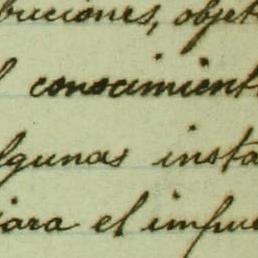 buciones, objet
l conocimient
lgunas insta
iara el impue